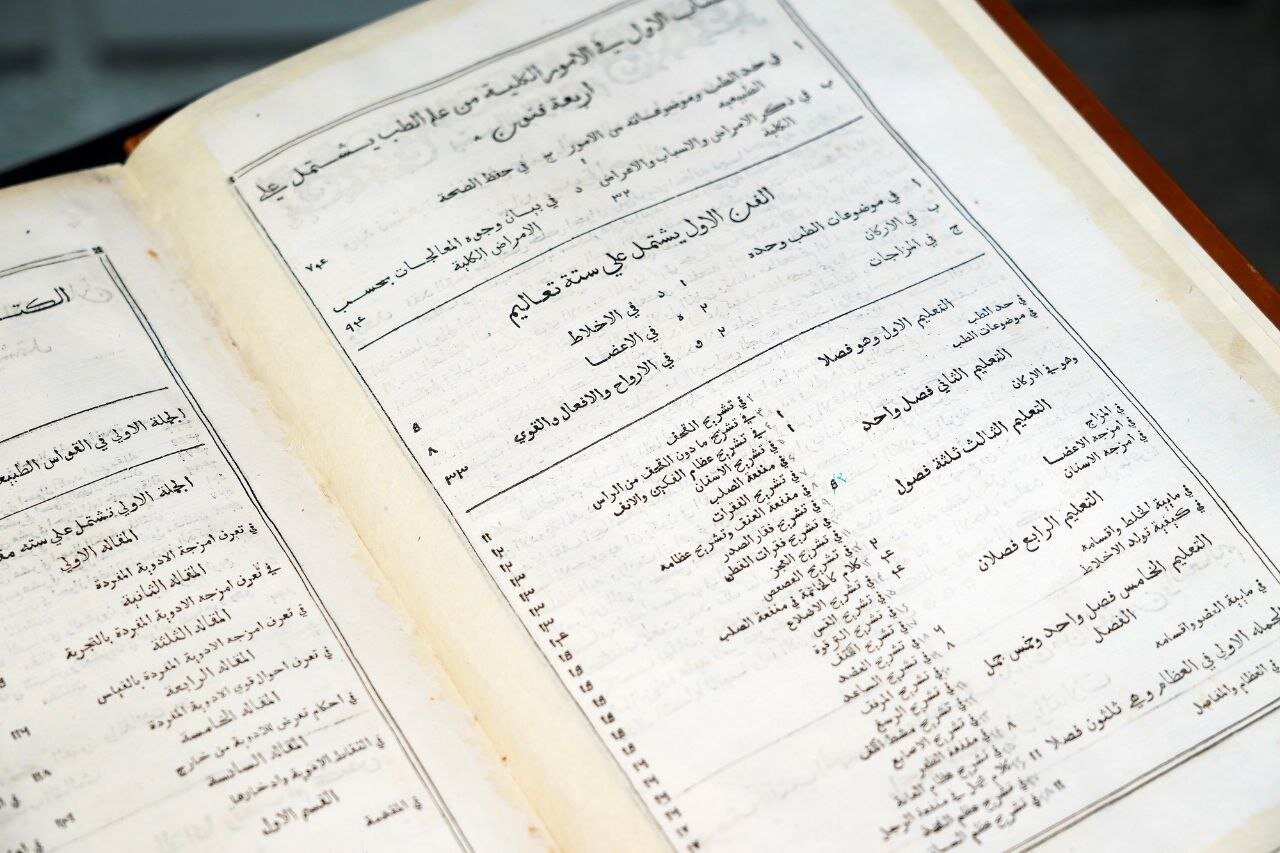 الاول في الامور الكلية من علم الطب يشتمل علي
اربعة فنون
ا في حد الطب وموضوعاته من الامور الطبيعيه
ب في ذكر الامراض والاسباب والاعراض الكلية ٣٢
ج في حفظ الصحة ٧٠٤
د في بيان وجوه المعالجات بحسب الامراض الكلية ٩٤
الفن الاول يشتمل علي ستة تعاليم
ا في موضوعات الطب وحده ١
ب في الاركان ٢
ج في المزاجات ٢
د في الاخلاط ٥
ه في الاعضا ٨
في الارواح والافعال والقوي ٣٣
التعليم الاول وهو فصلا
في حد الطب
في موضوعات الطب ١
التعليم الثاني فصل واحد
وهو في الاركان
التعليم الثالث ثلثة فصول
في المزاج ٢
في امزجه الاعضا ٤
في امزجه الاسنان ٤
التعليم الرابع فصلان
في ماهية الخلط واقسامه ٦
في كيفية تولد الاخلاط ٨
التعليم الخامس فصل واحد وخمس جمل
الفصل
في ماهية العضو واقسامه ٨
الجمله الاولي في العظام وهي ثلثون فصلا
في العظام والمفاصل
في تشريح القحف
في تشريح ما دون القحف من الراس
في تشريح عظام الفكين والانف
في تشريح الاسنان
في منفعة الصلب
في تشريح الفقرات
في منفعة العنق وتشريح عظامه
في تشريح فقار الصدر
في تشريح فقرات القطن
في تشريح العجز
في تشريح العصعص
كلام كالخاتمة في منفعة الصلب
في تشريح الاضلاع
في تشريح القص
في تشريح الترقوة
في تشريح الكتف
في تشريح العضد
في تشريح الساعد
في تشريح المرفق
في تشريح الرسغ
في تشريح مشط الكف
في تشريح الاصابع
في منفعة الظفر
في تشريح عظام العانة
كلام مجمل في منفعة الرجل
في تشريح عظم الفخذ
في تشريح عظم الساق
الجملة الاولي في القوانين الطبيعية
الجملة الاولي تشتمل علي سته
المقاله الاولي
في تعرف امزجة الادوية المفردة
المقاله الثانية
في تعرف امزجه الادوية المفردة بالتجربة
المقاله الثلثة
في تعرف امزجه الادوية المفردة بالقياس
المقاله الرابعة
في تعرف احوال قوي الادوية المفردة
المقاله الخامسة
في احكام تعرض للادوية من خارج
المقاله السادسة
في التقاط الادوية وادخارها
القسم الاول